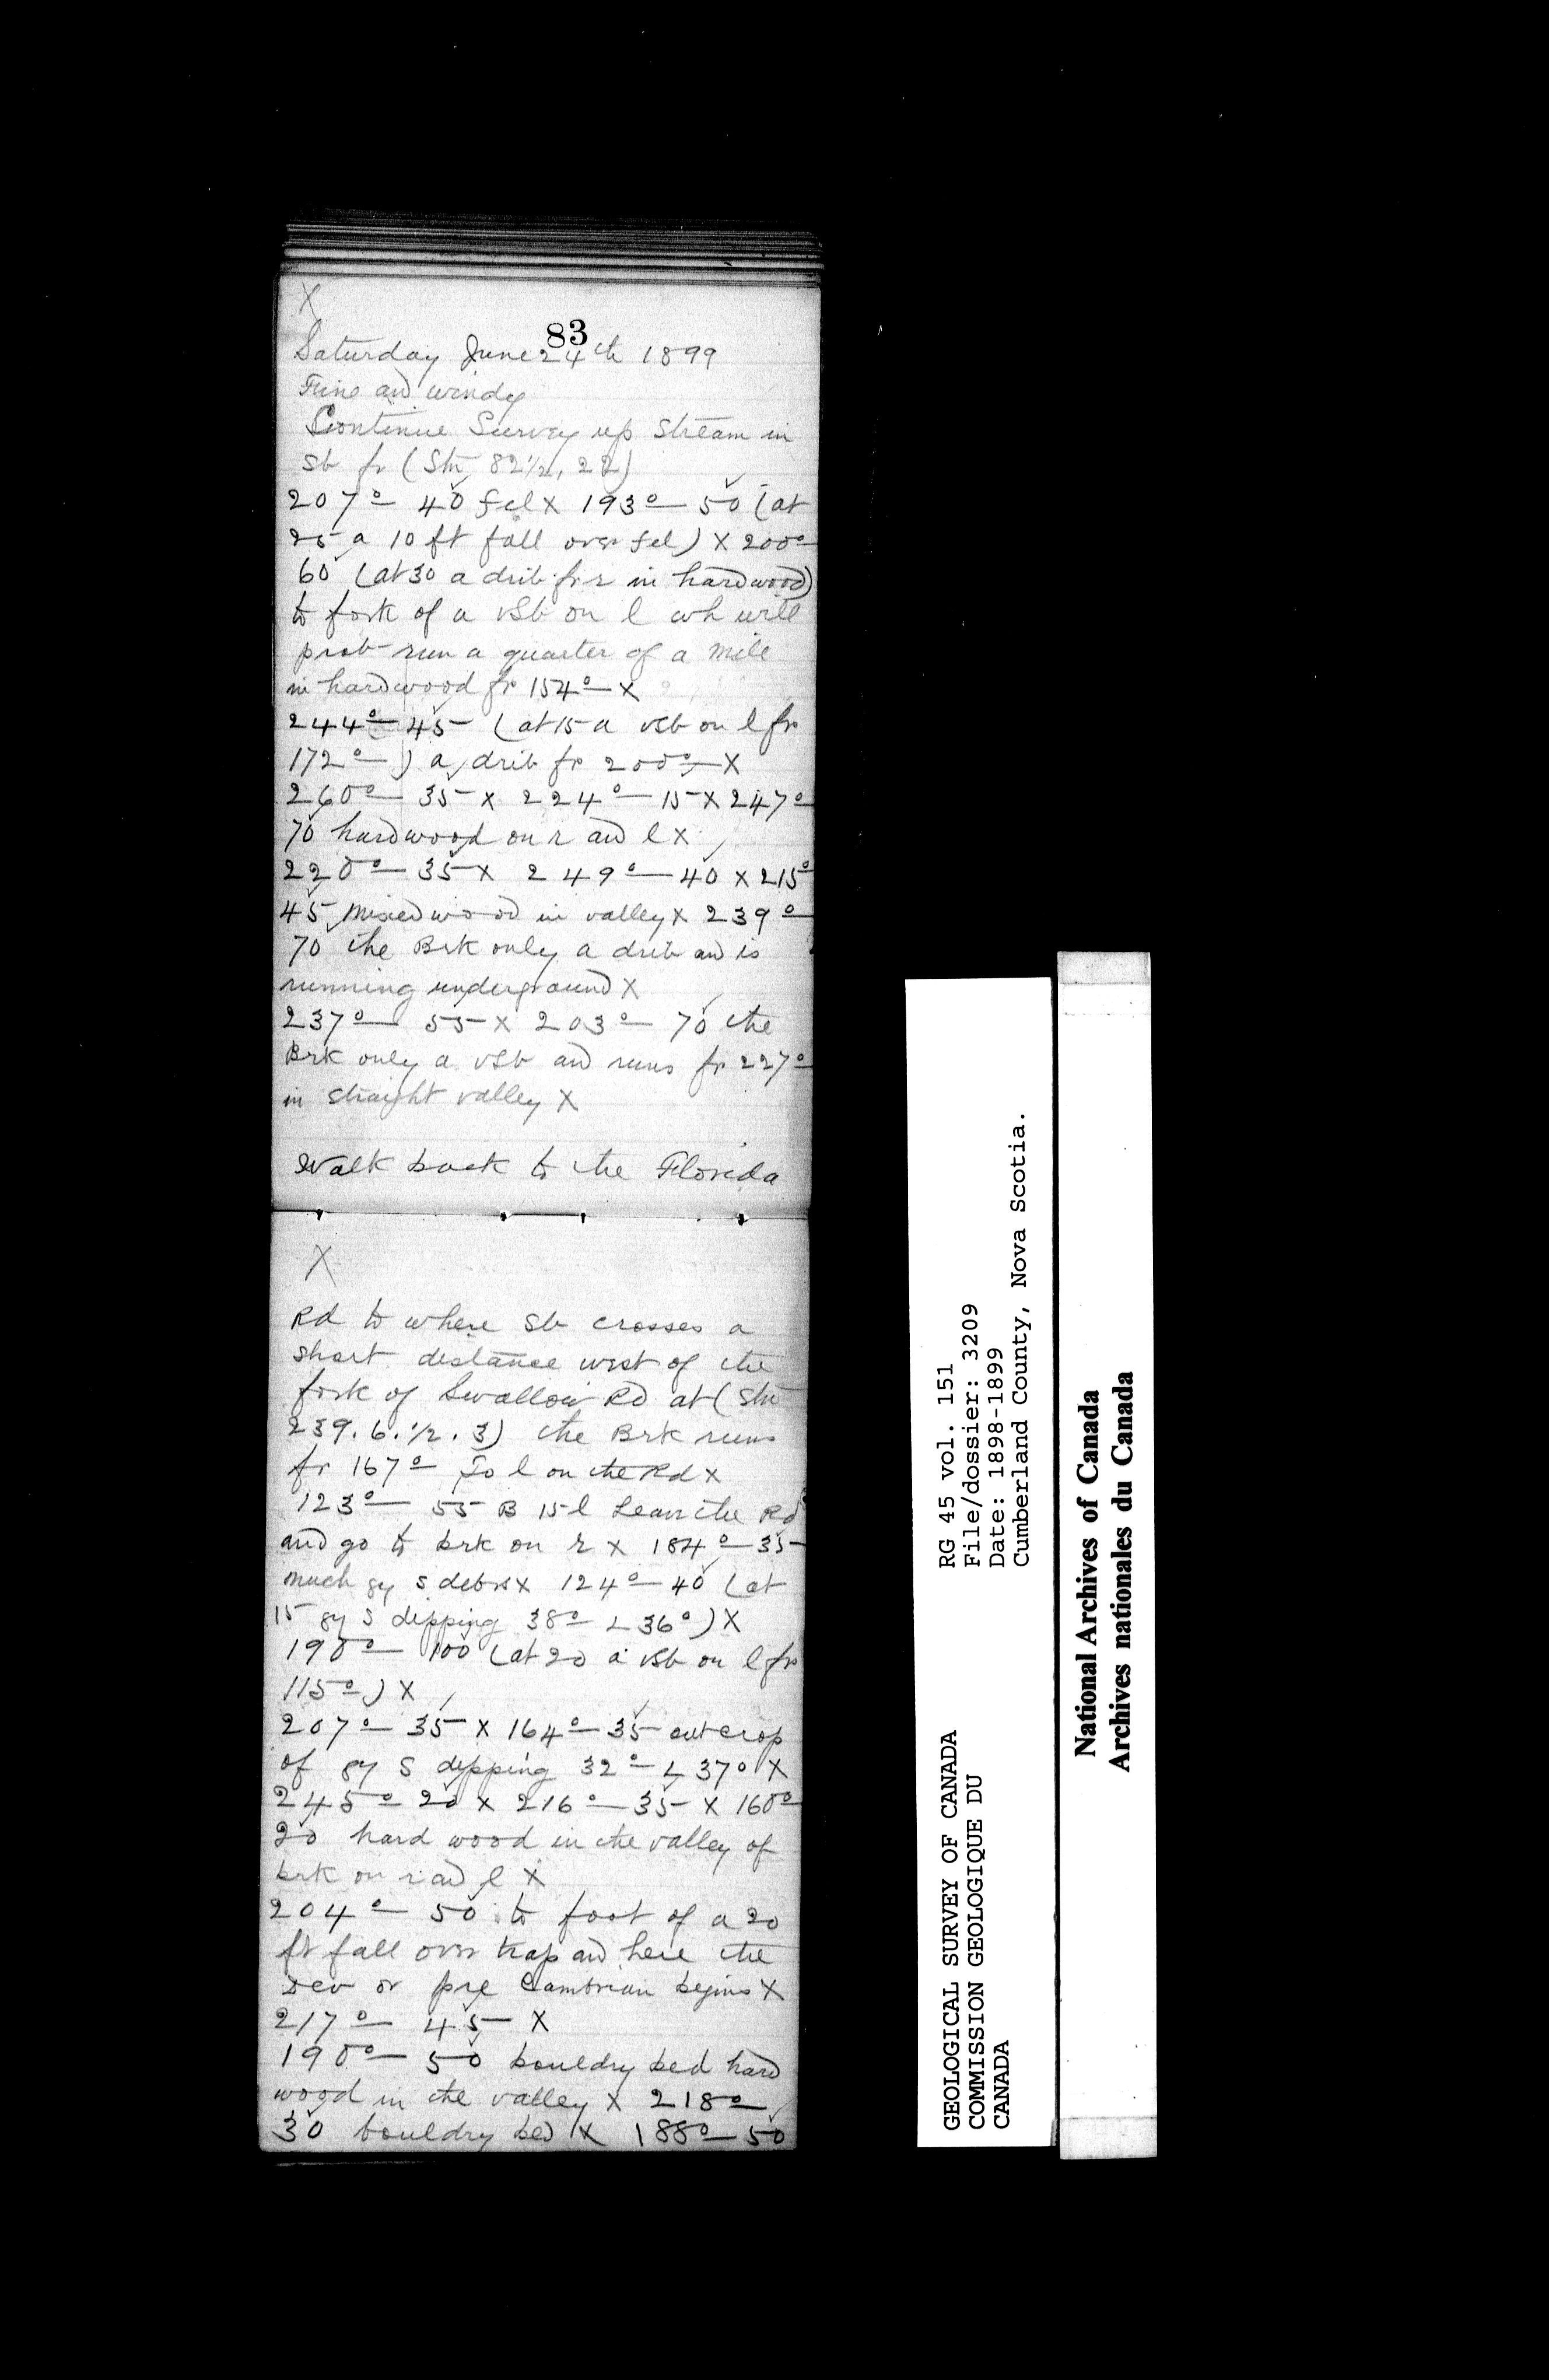 X
83
Saturday June 24th 1899
Fine and windy
Continue Survey up Stream in
Sb fr (Stn 82 1/2, 22)
207° 40 fel X 193° 50 (at
25 a 10 ft fall over fel) X 200°
60 (at 30 a drib fr r in hardwood)
to fork of a vSb on l wh will
prob run a quarter of a mile
in hardwood fr 154° X
244° 45 (at 15 a vSb on l fr
172°) a drib fr 200° X
260° 35 X 224° 15 X 247°
70 hardwood on r and l X
220° 35 X 249° 40 X 215°
45 mixed wood in valley X 239°
70 the Brk only a drib and is
running underground X
237° 55 X 203° 70 the
Brk only a vSb and runs fr 227°
in straight valley X
Walk back to the Florida
X
Rd to where Sb crosses a
short distance west of the
fork of Swallow Rd at (Stn
239. 6. 1/2. 3) the Brk runs
fr 167° Go l on the Rd X
123° 55 B 15 l Leave the Rd
and go to brk on r X 184° 35
much gy s debris X 124° 40 (at
15 gy S dipping 38° L 36°) X
190° 100 (at 20 a vSb on l fr
115°) X
207° 35 X 164° 35 outcrop
of gy S dipping 32° L 37° X
245° 20 X 216° 35 X 160°
20 hard wood in the valley of
brk on r and l X
204° 50 to foot of a 20
ft fall over trap and here the
Dev or pre Cambrian begins X
217° 45 X
190° 50 bouldry bed hard
wood in the valley X 218°
30 bouldry bed X 188° 50
GEOLOGICAL SURVEY OF CANADA
COMMISSION GEOLOGIQUE DU
CANADA
RG 45 vol. 151
File/dossier: 3209
Date: 1898-1899
Cumberland County, Nova Scotia.
National Archives of Canada
Archives nationales du Canada